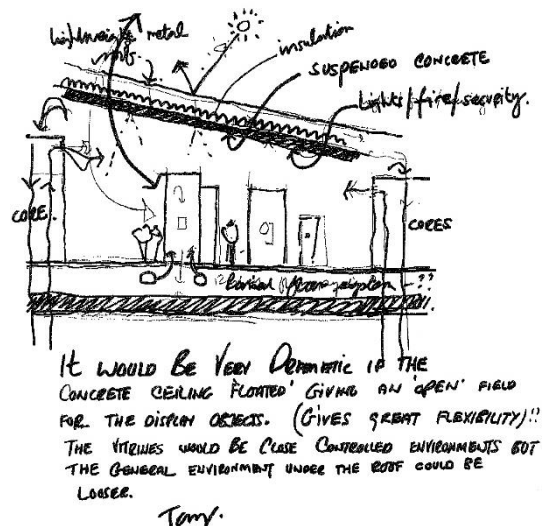 lightweight metal
roof
insulation
SUSPENDED CONCRETE
lights/fire/security.
CORE.
CORES
floor ??
IT WOULD BE VERY DRAMATIC IF THE
CONCRETE CEILING 'FLOATED' GIVING AN 'OPEN' FIELD
FOR THE DISPLAY OBJECTS. (GIVES GREAT FLEXIBILITY)!!
THE VITRINES WOULD BE CLOSE CONTROLLED ENVIRONMENTS BUT
THE GENERAL ENVIRONMENT UNDER THE ROOF COULD BE
LOOSER.
Tony.